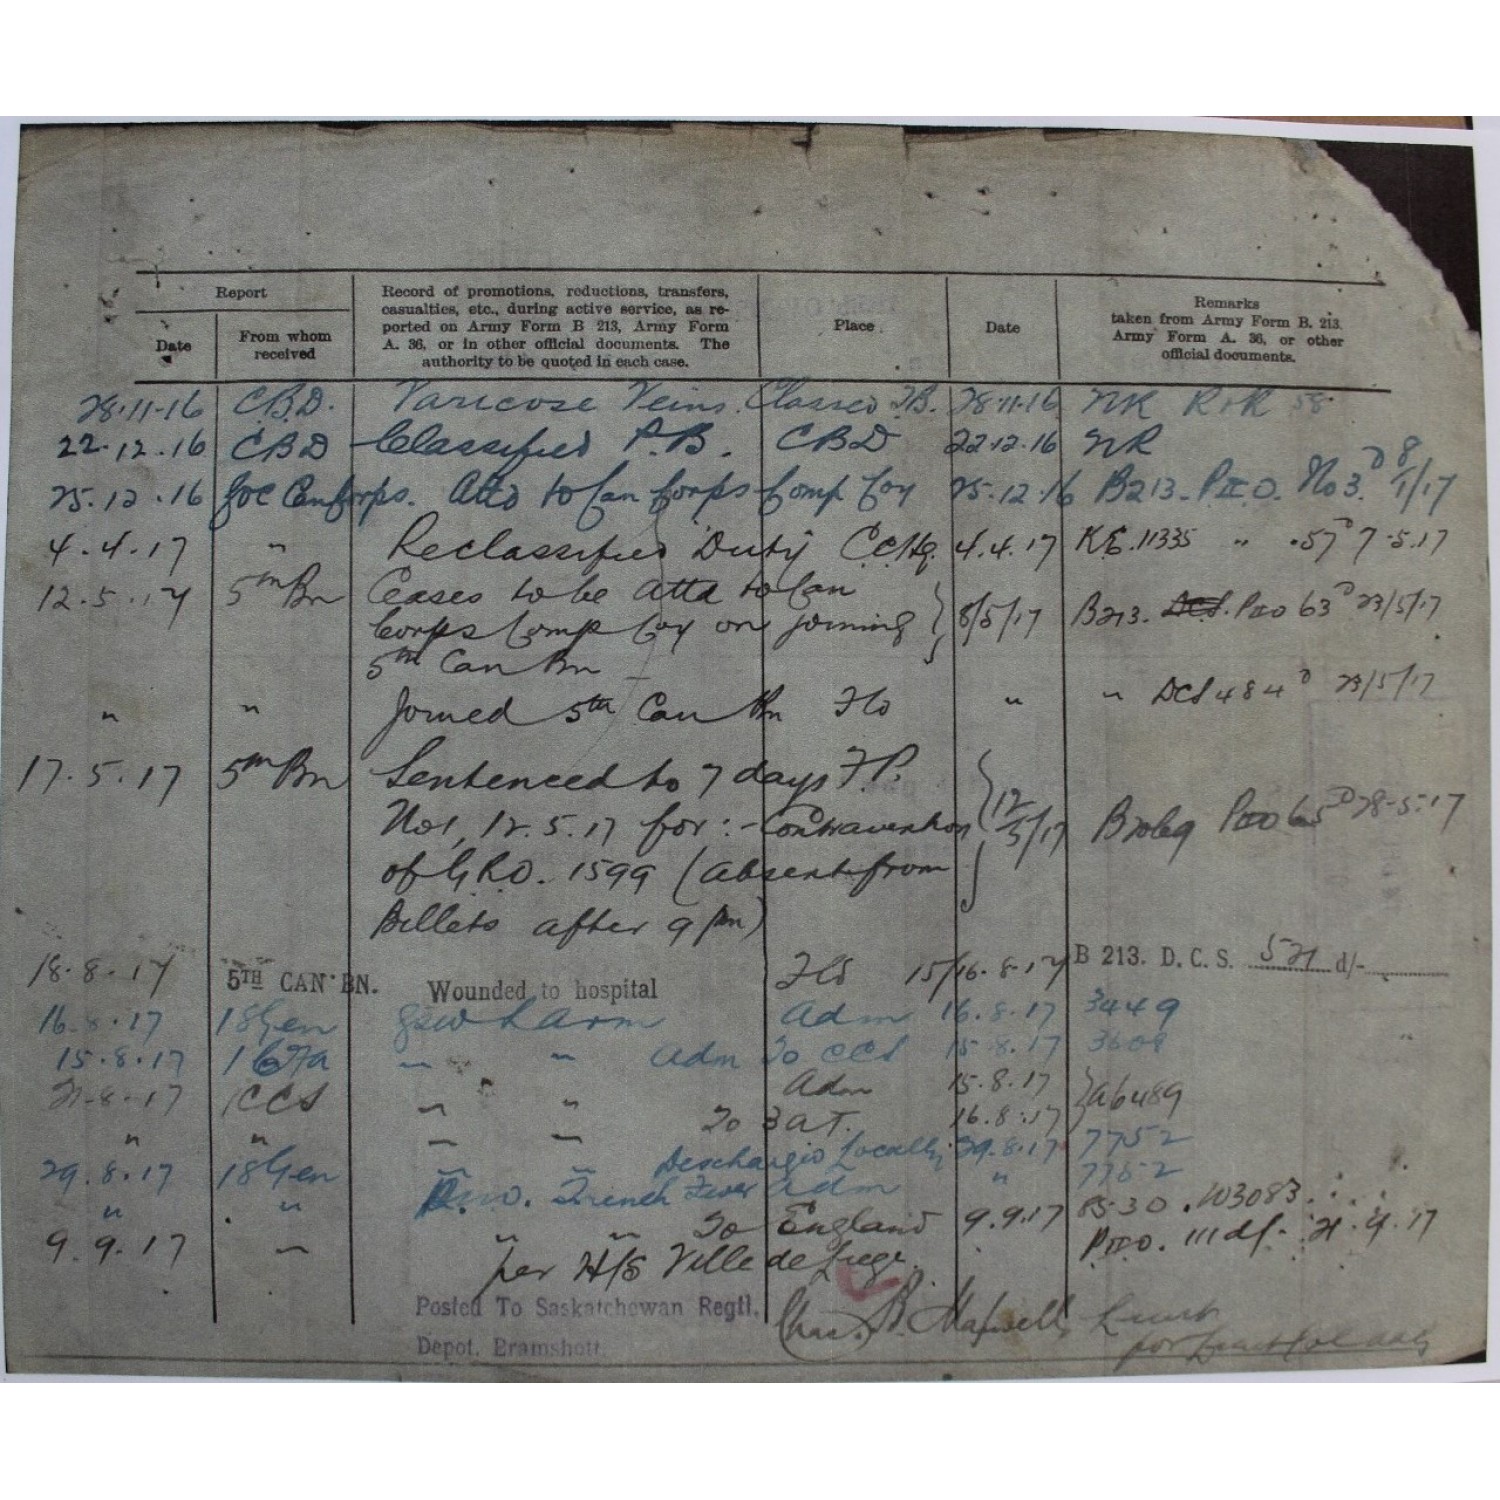 Report
Date
From whom
received
Record of promotions, reductions, transfers,
casualties, etc., during active service, as re-
ported on Army Form B 213, Army Form
A. 36, or in other official documents. The
authority to be quoted in each case.
Place
Date
Remarks
taken from Army Form B. 213,
Army Form A. 36, or other
official documents.
28.11.16 C.B.D. Varicose Veins. Classed T.B. 28.11.16 NR 58
22.12.16 CBD Classified P.B. CBD 22.12.16 NR
25.12.16 Can Corps. Attd to Can Corps Comp Coy 25.12.16 B213. PIIO. No 3 D 8/1/17
4.4.17 " Reclassified Duty C.C.Hq. 4.4.17 11335 " 57 D 7-5.17
12.5.17 5th Bn Ceases to be attd to Can
Corps Comp Coy on joining 8/5/17 B213. DCS. PIIO 63 D 23/5/17
5th Can Bn
" " Joined 5th Can Bn Fld " " DCS 484 D 23/5/17
17.5.17 5th Bn Sentenced to 7 days F.P.
No 1, 12.5.17 for :- Contravention 12/5/17 B2069 PIIO 65 D 28-5.17
of G.R.O. 1599 (absent from
Billets after 9 pm)
18.8.17 5TH CAN BN. Wounded to hospital Fld 15/16.8.17 B 213. D.C.S. 521 d/-
16.8.17 18 Gen gsw L arm Adm 16.8.17 3449
15.8.17 16 Fa " " Adm To CCS 15.8.17 3608
21.8.17 1 CCS " " Adm 15.8.17 A6489
" " " " To 3 A.T. 16.8.17
29.8.17 18 Gen " " Discharged Locally 29.8.17 7752
" " P.U.O. Trench Fever Adm " 7752
9.9.17 " " " To England 9.9.17 8530. W3083
per H/S Ville de Liege. PIIO. 111 d/- 21.9.17
Posted To Saskatchewan Regtl.
Depot, Bramshott.
Chas. B. Maxwell, Lieut
for Lieut Col